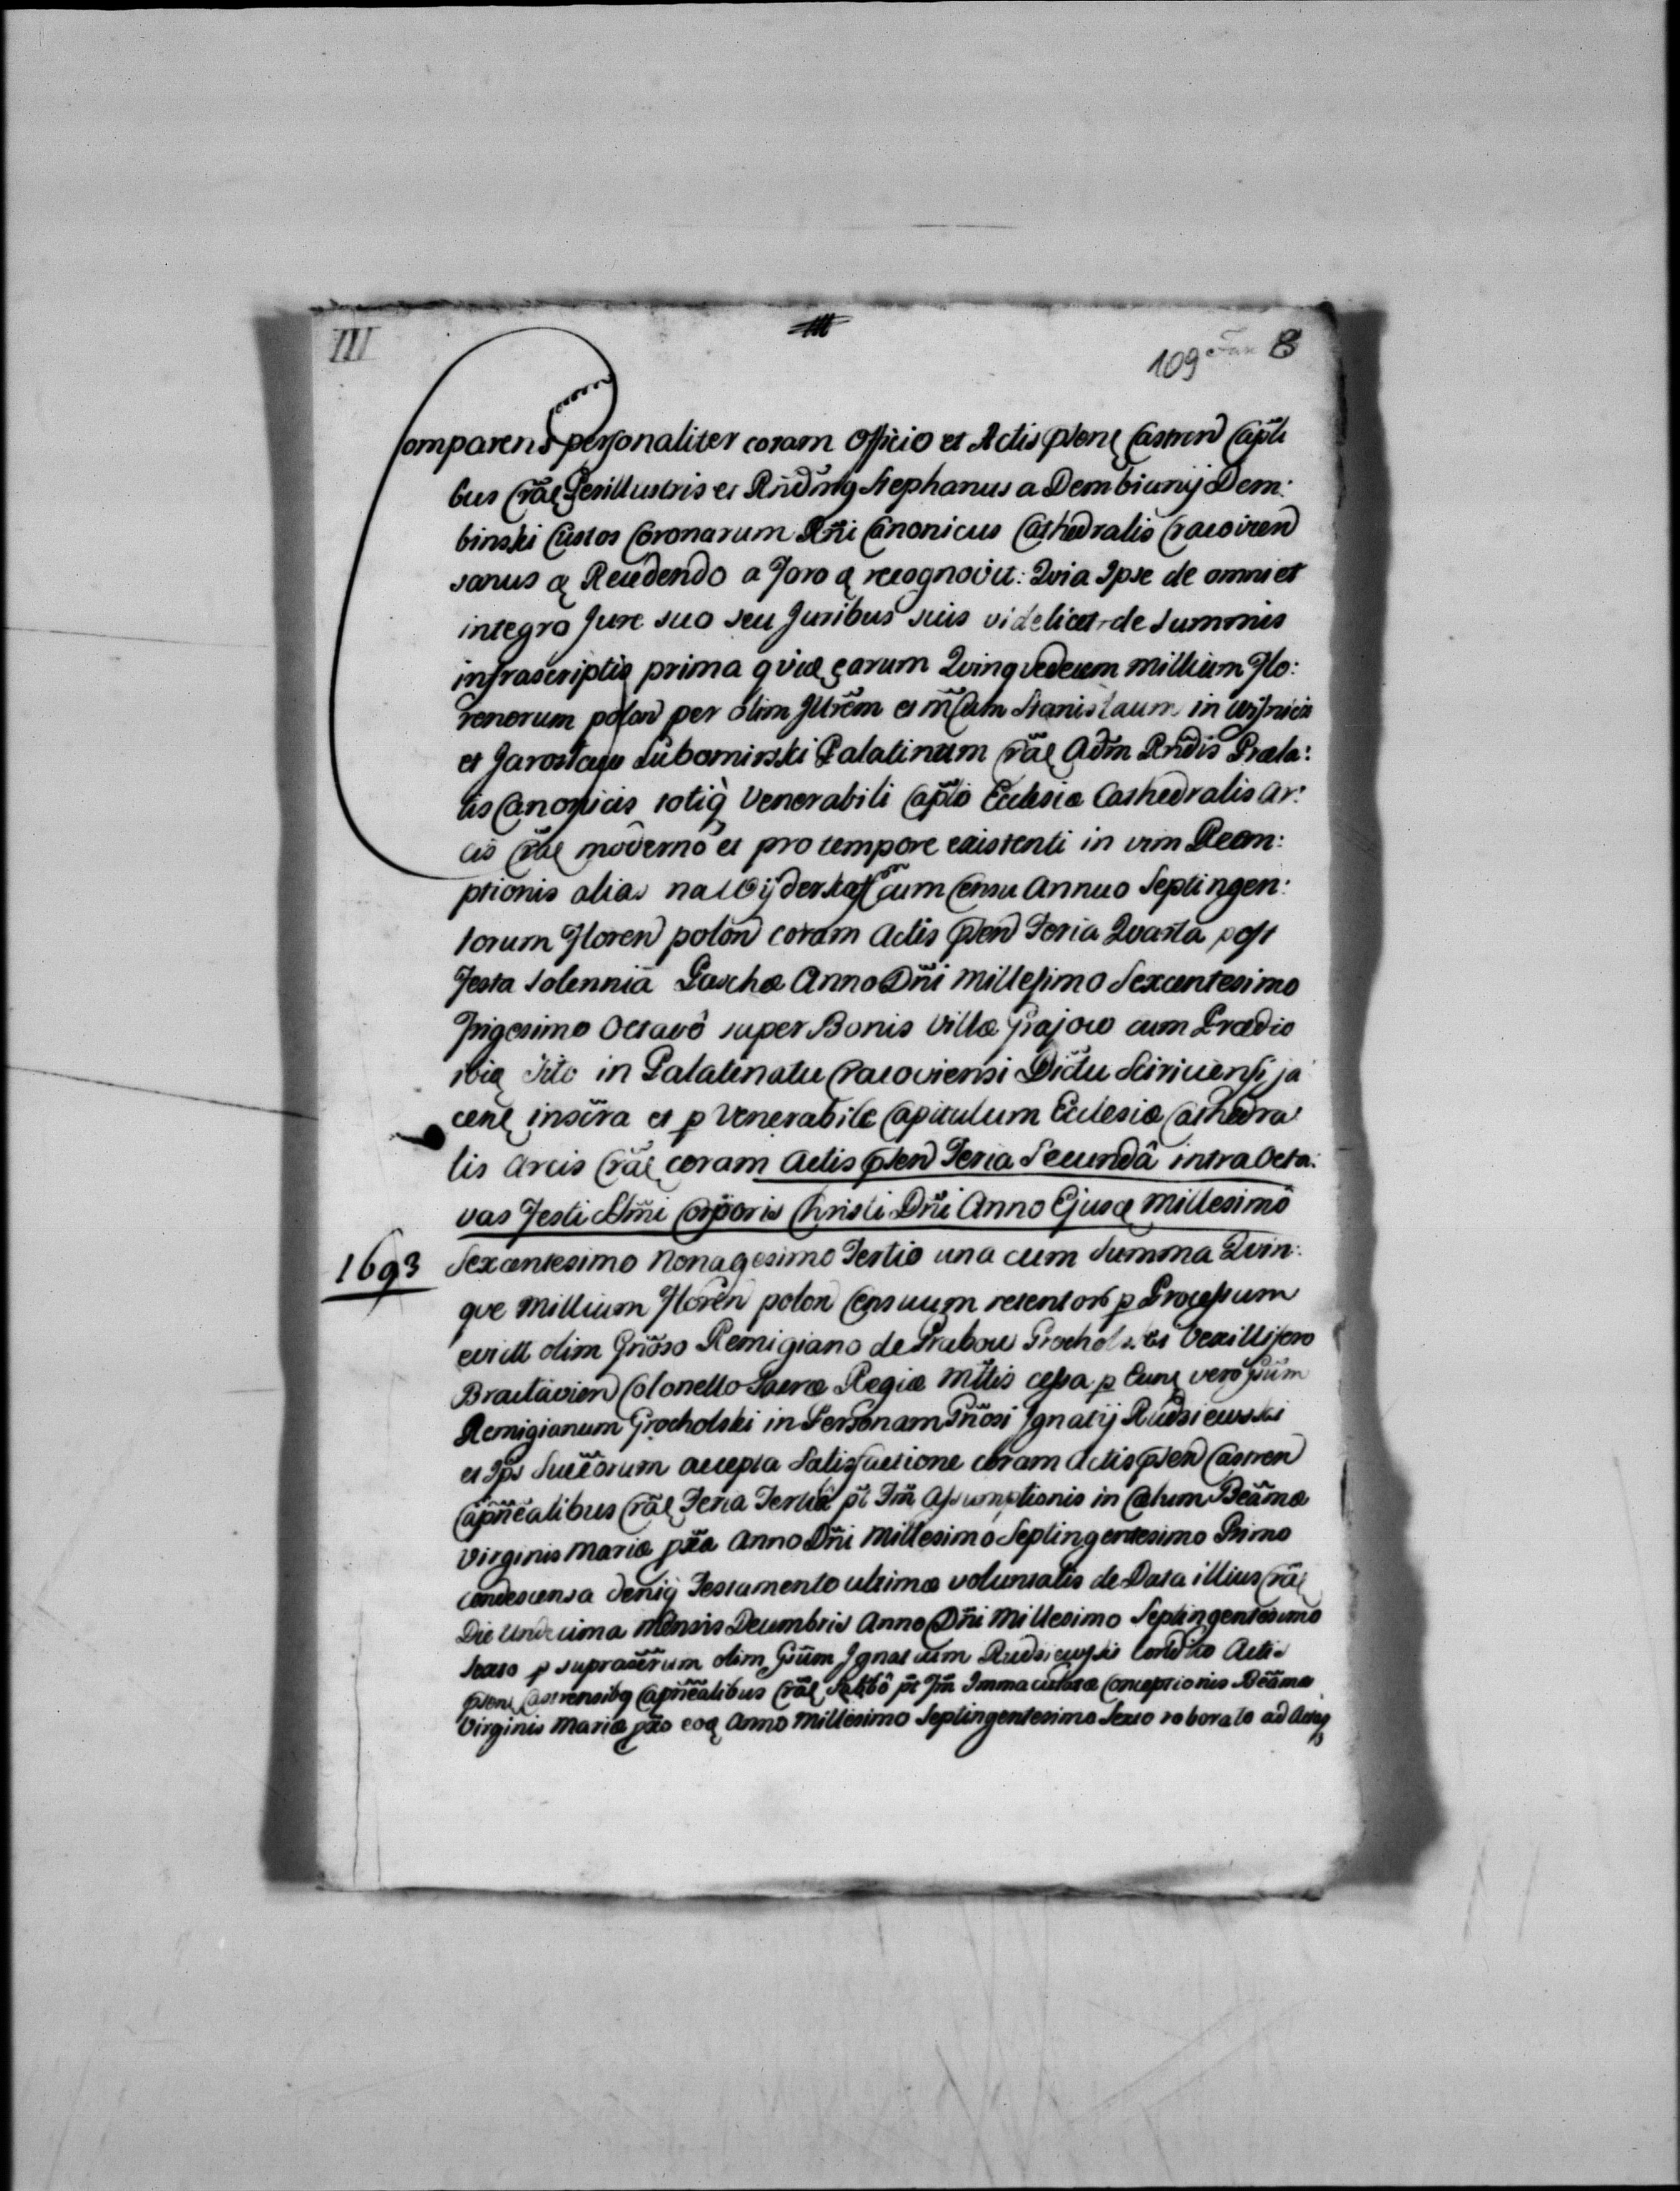 III
109 B
Comparens personaliter coram Officio et Actis pñtẽ Castren Capñli
bus Crãe Perillustris et Rñdmg Stephanus a Dembiany Dem:
binski Custos Coronarum Rñi Canonicus Cathedralis Cracovien
sanus ę Recedendo a Foro ę recognovit: Qvia Ipse de omni et
integro Jure suo seu Juribus suis videlicet de Summis
infrascriptis prima qviæ earum Qvinqvedecem millium Flo:
renorum polon per olim Jllrẽm et mcum Stanislaum in wisnicz
et Jaroslaw Lubomirski Palatinum Crãe Adm Rndis Præla:
tis Canonicis totiq̀ Venerabili Capło Ecclesiæ Cathedralis Ar:
cis Crãe moderno et pro tempore existenti in vim Reem:
ptionis alias na Wyderkaff cum Censu Annuo Septingen:
torum Floren polon coram Actis pñten Feria Qvarta post
Festa Solennia Paschæ Anno Dñi Millesimo Sexcentesimo
Trigesimo Octavô super Bonis Villæ Grajow cum Prædio
ibię sito in Palatinatu Cracoviensi Dictu Sciricensi ja
cenę inscra et p Venerabile Capitulum Ecclesiæ Cathedra
lis Arcis Crãe coram Actis pñten Feria Secundâ intra Octa:
vas Festi Sñmi Corporis Christi Dñi Anno Ejusę Millesimô
1693 Sexcentesimo Nonagesimo Tertio una cum Summa Qvin:
qve Millium Floren polon Censuum retentor p Processum
evict olim Gñoso Remigiano de Grabow Grocholski Vexillifero
Braclavien Colonello Sacræ Regiæ Mttis cessa p Eunę vero Gsum
Remigianum Grocholski in Personam Gñosi Ignatij Rudsiewski
et Ips Succõrum accepta Satisfactione coram Actis pñten Castren
Capñealibus Crãe Feria Tertiâ pt Fm Assumptionis in Cœlum Beãmæ
Virginis Mariæ pxa Anno Dñi Millesimô Septingentesimo Primo
condescensa deniq̀ Testamento ultimæ voluntatis de Data illius Crãe
Die Undecima Mensis Decembris Anno Dñi Millesimo Septingentesimo
Sexto p supractum olim Gsum Ignatium Rudsiewski condito Actis
pñtenę Castrensibg Capñealibus Crãe Sabbô pt Fm Immaculatæ Conceptionis Beãmæ
Virginis Mariæ pxo eoę Anno Millesimo Septingentesimo Sexto roborato ad Actaq